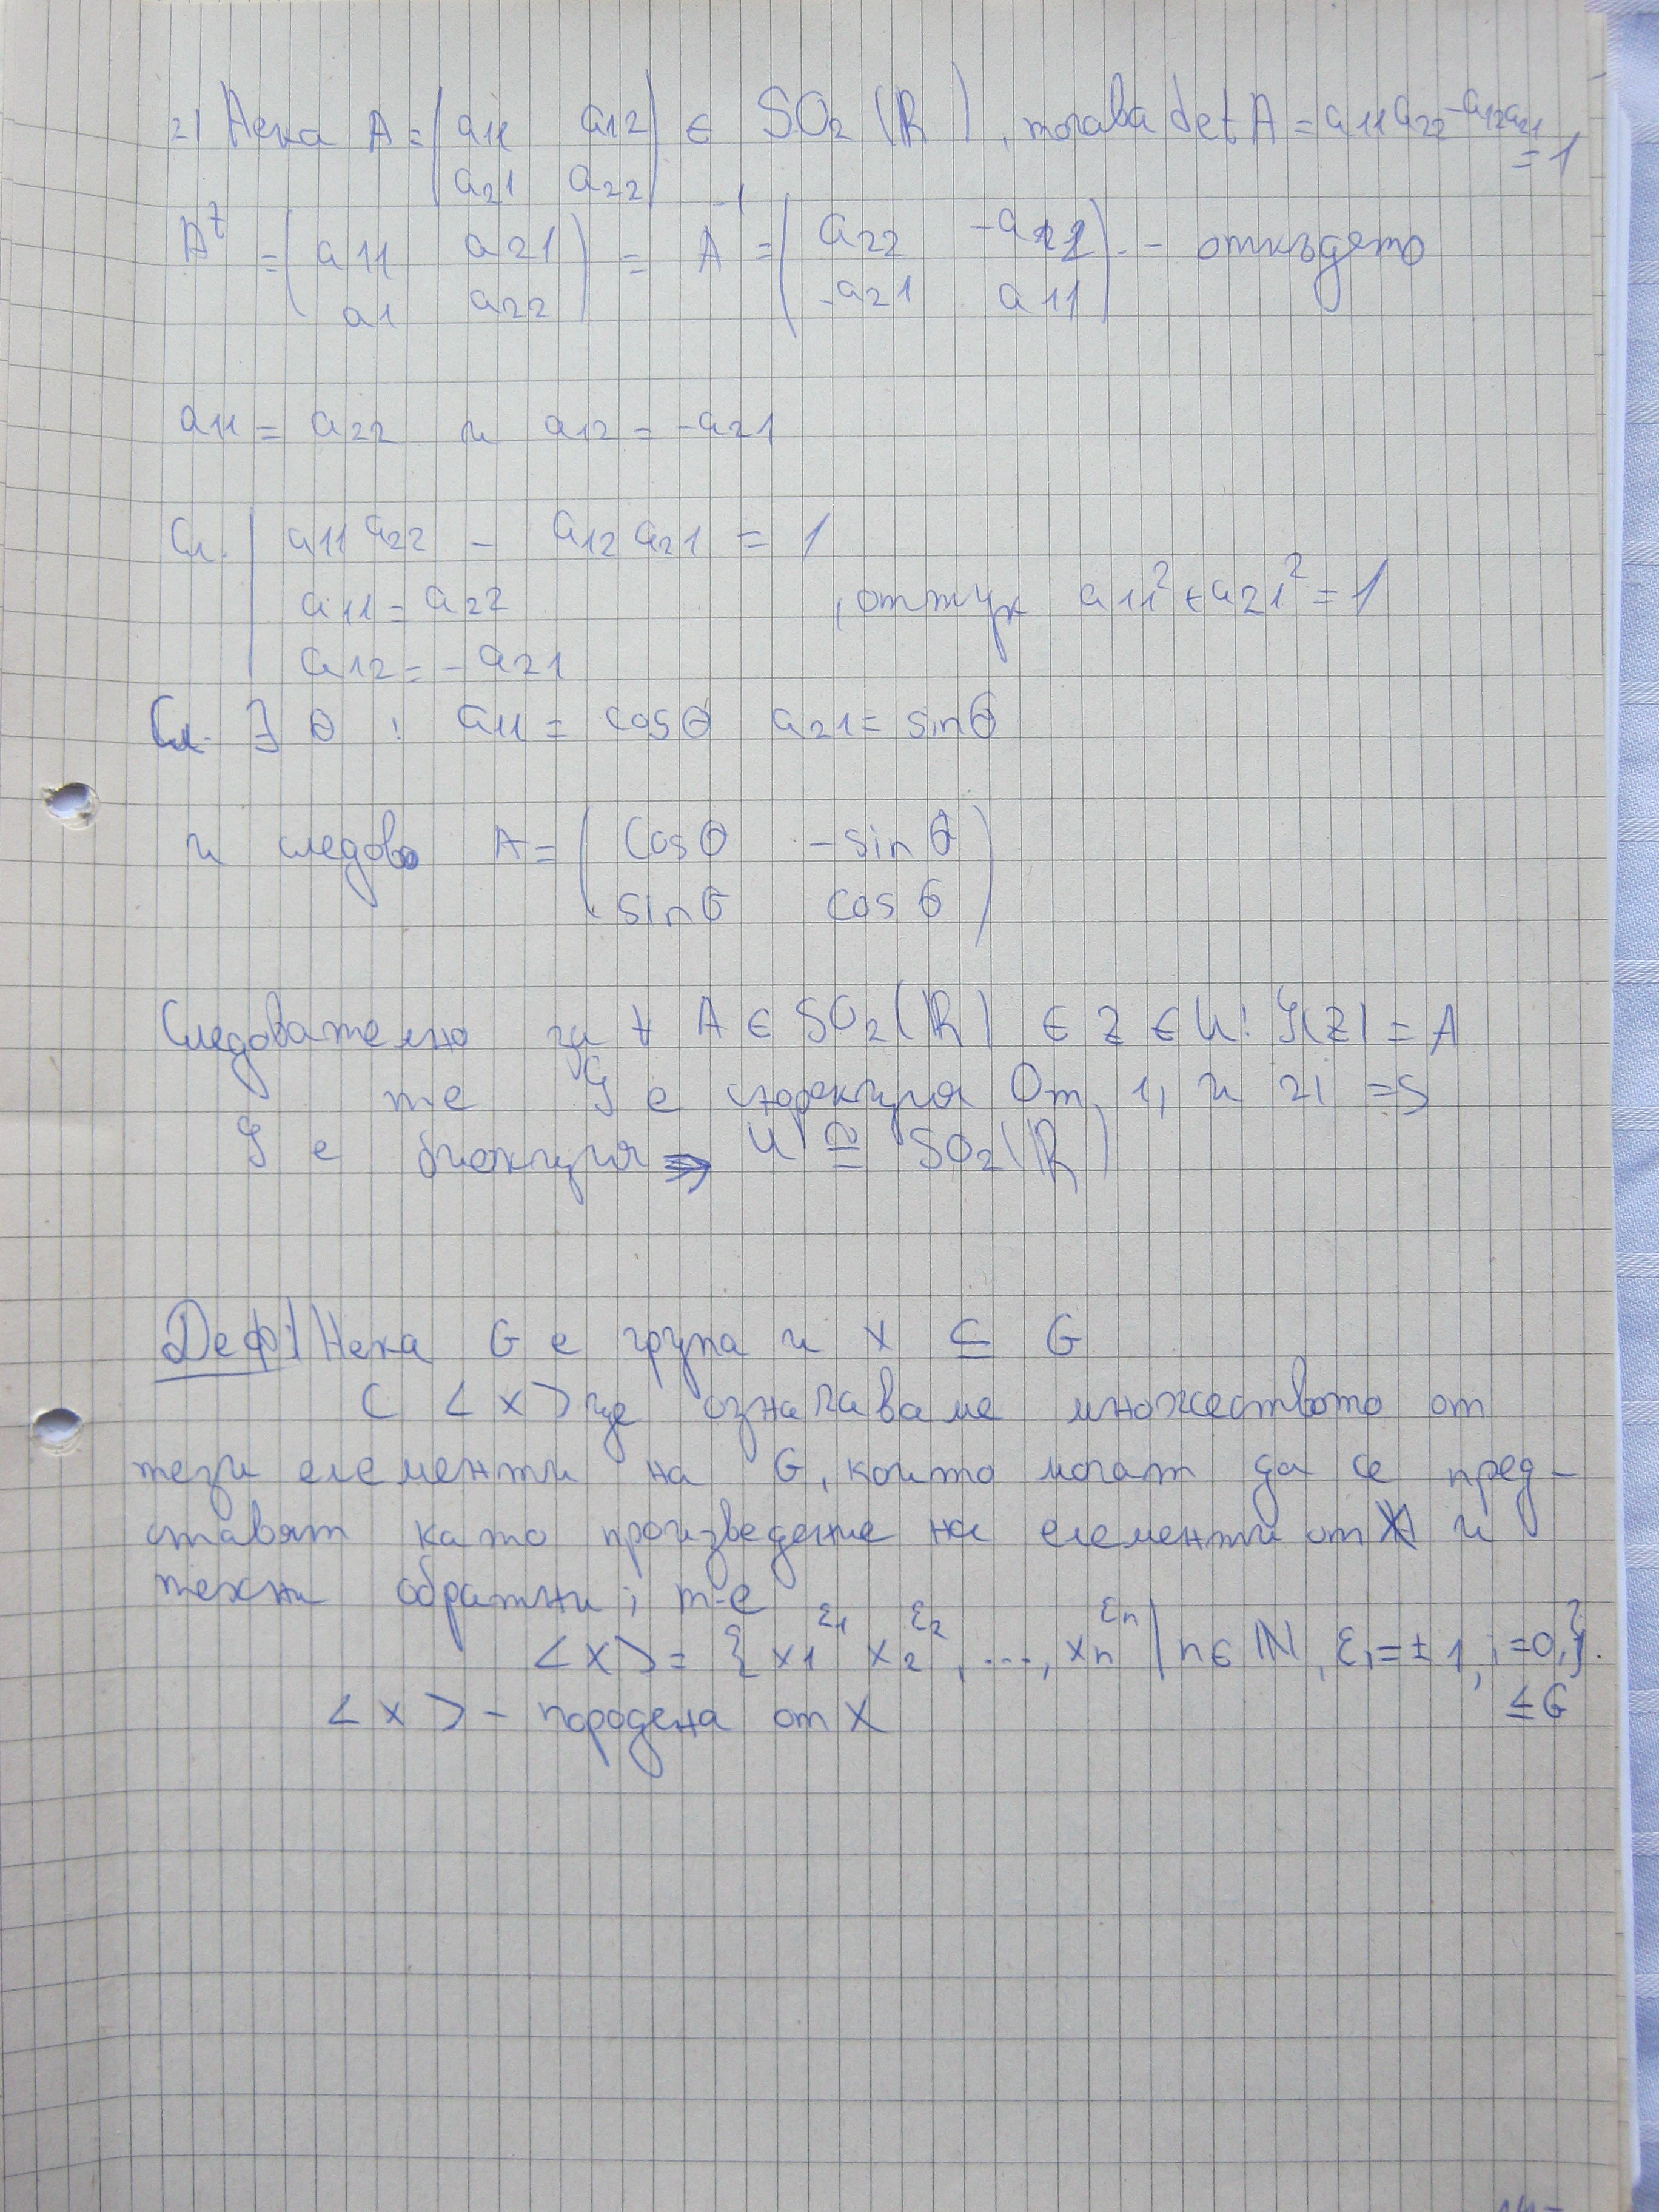 2) Нека A = (a11 a12) ∈ SO2(ℝ), тогава det A = a11 a22 - a12 a21 = 1
(a21 a22)
A^t = (a11 a21) = A^-1 = (a22 -a12) - откъдето
(a1 a22) (-a21 a11)
a11 = a22 и a12 = -a21
Сл. | a11 a22 - a12 a21 = 1
a11 = a22 , оттук a11² + a21² = 1
a12 = -a21
Сл. ∃ θ : a11 = cosθ a21 = sinθ
и следов A = (cosθ -sinθ)
(sinθ cosθ)
Следователно за ∀ A ∈ SO2(ℝ) ∈ z ∈ U: φ(z) = A
т е φ е сюрекция От 1) и 2) =>
φ е биекция => U ≅ SO2(ℝ)
Деф: | Нека G е група и X ⊆ G
С <X> ще означаваме множеството от
тези елементи на G, които могат да се пред-
ставят като произведение на елементи от X и
техни обратни; т-е
<X> = {x1^ε1 x2^ε2, ..., xn^εn | n ∈ ℕ, εi = ±1, i = 0, }.
≤ G
<X> - породена от X